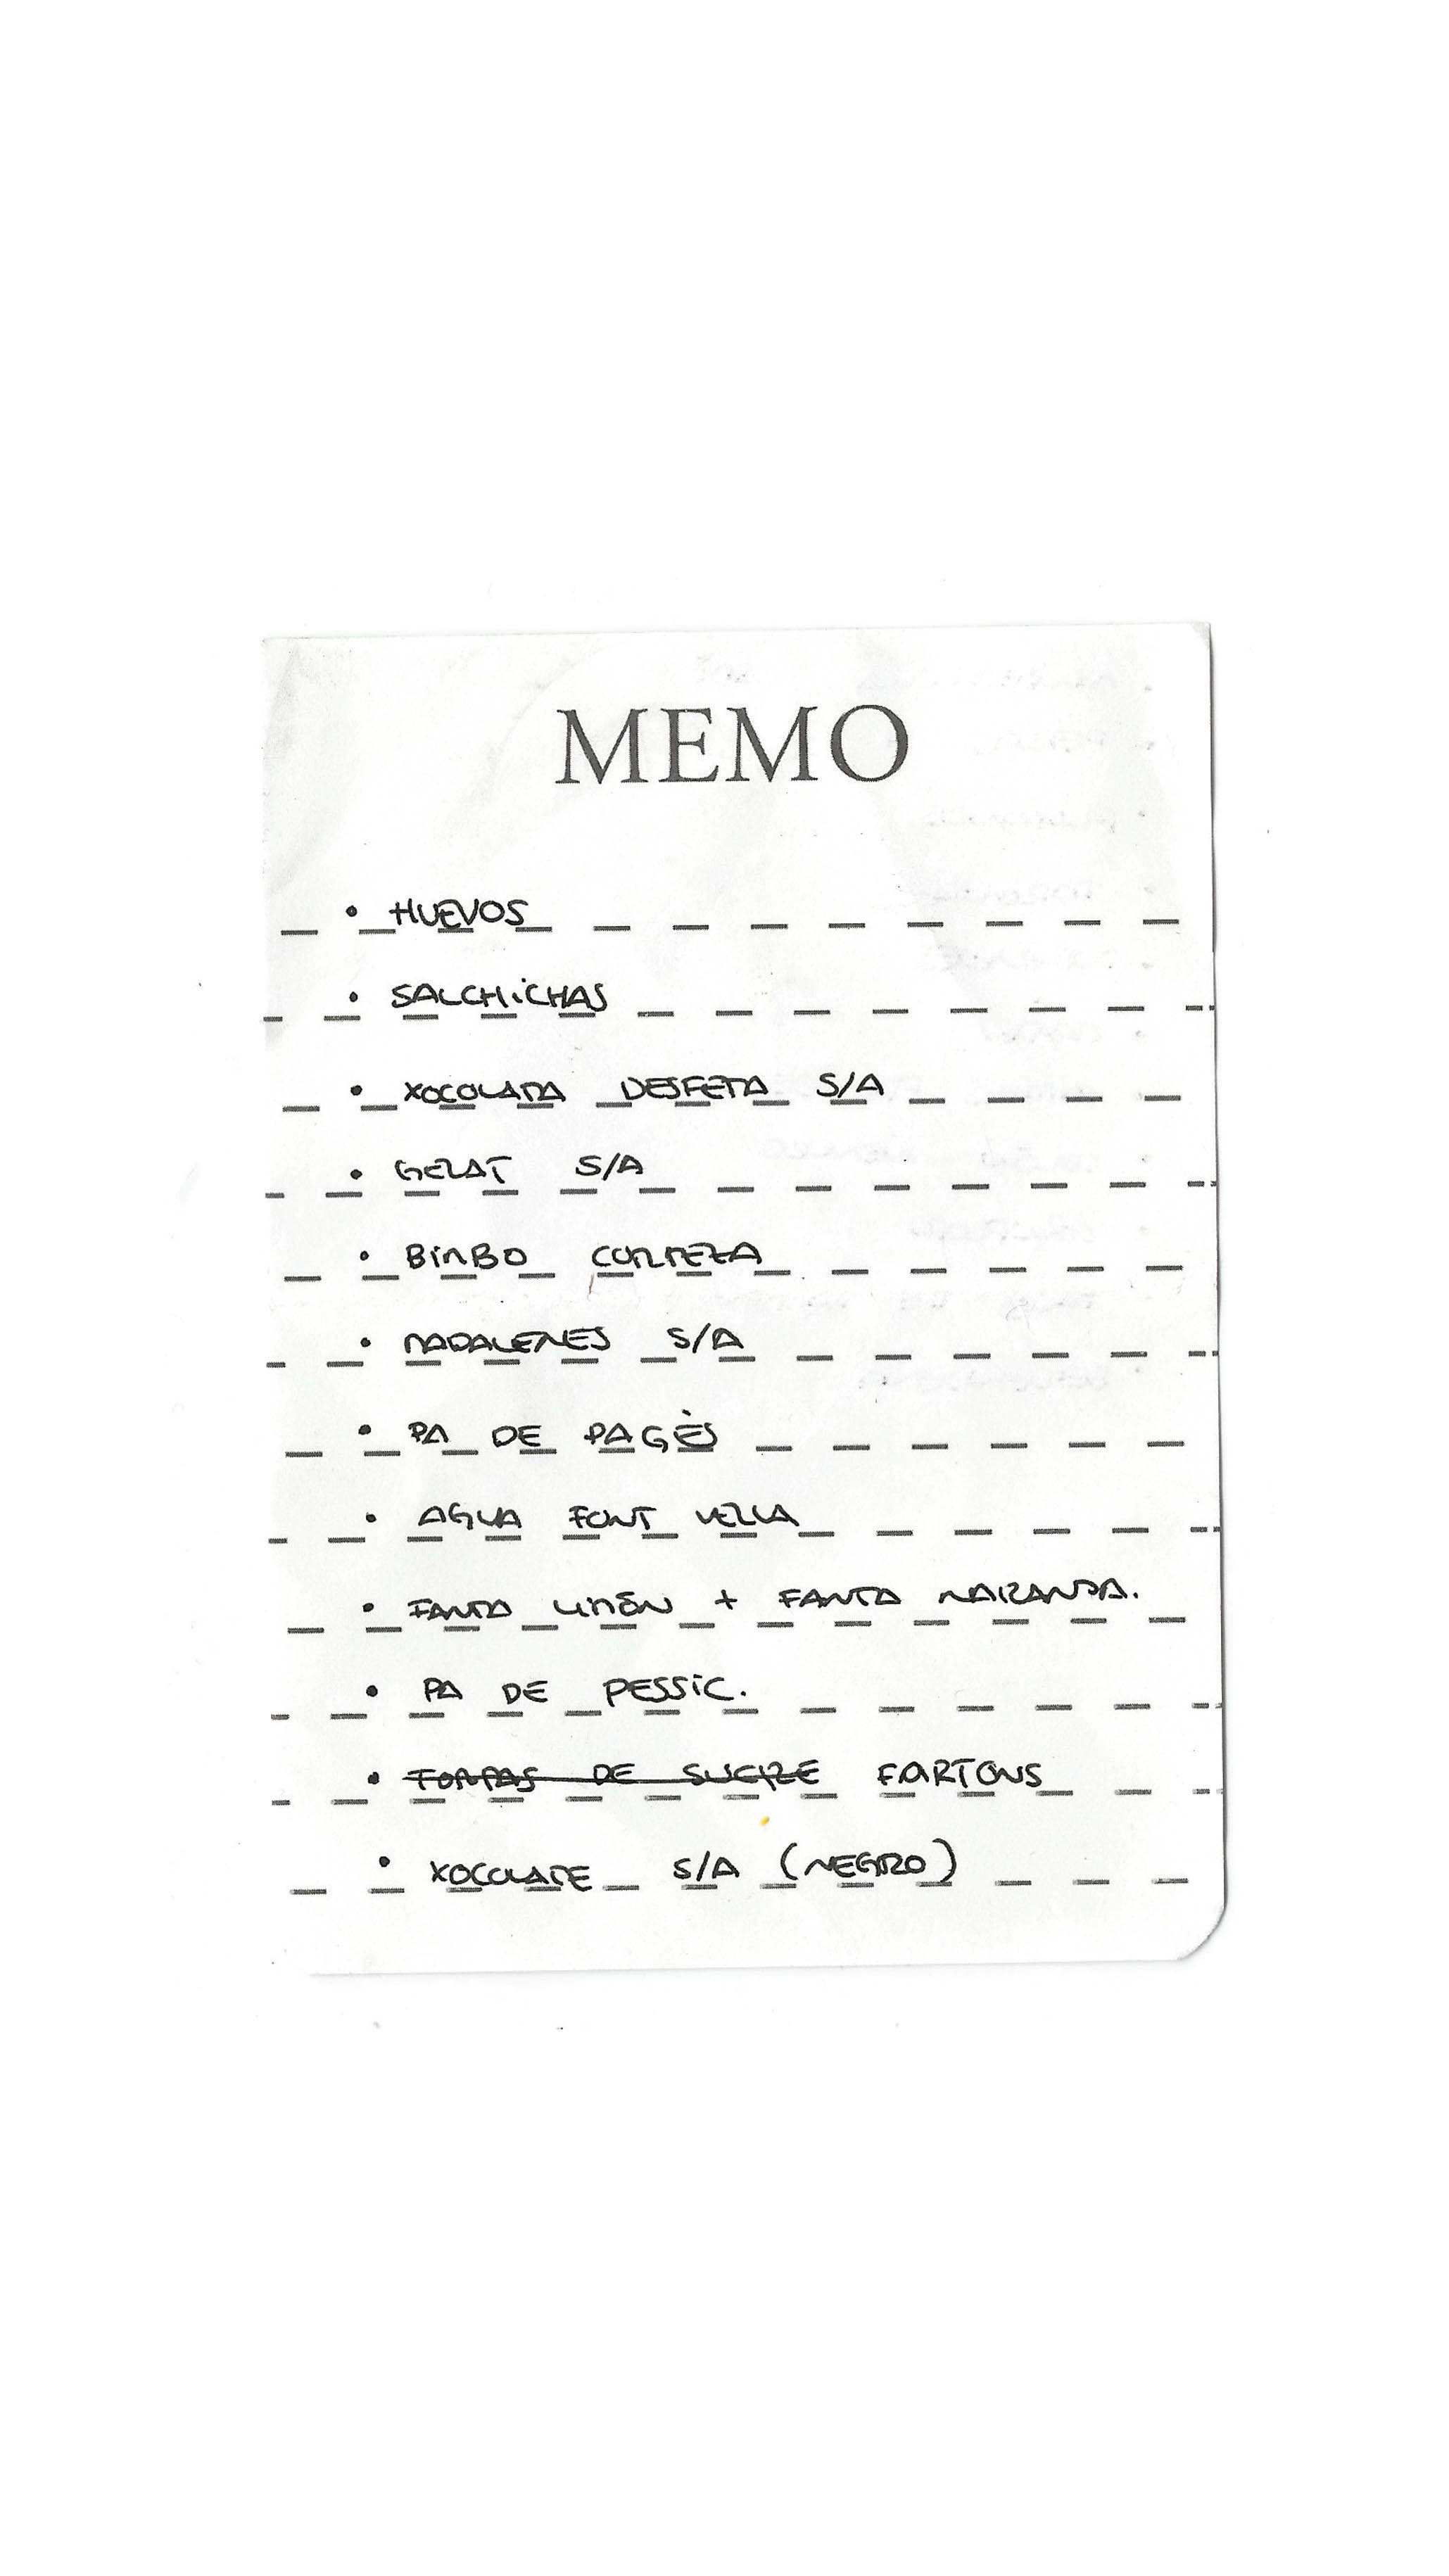 MEMO
• HUEVOS
• SALCHICHAS
• XOCOLATA DESFETA S/A
• GELAT S/A
• BIMBO CORTEZA
• MADALENES S/A
• PA DE PAGÈS
• AGUA FONT VELLA
• FANTA LIMÓN + FANTA NARANJA.
• PA DE PESSIC.
• DE SUCRE FARTONS
• XOCOLATE S/A (NEGRO)